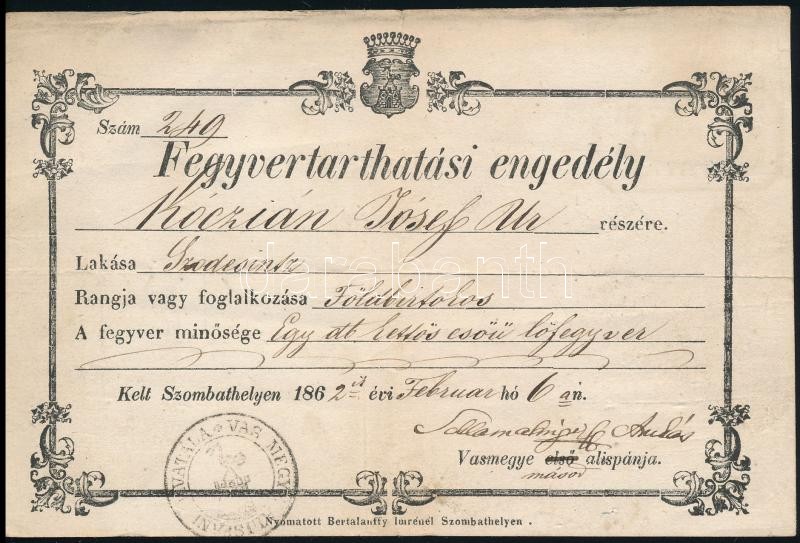 Szám 249
Fegyvertarthatási engedély
Kóczián Jósef Úr részére.
Lakása
Rangja vagy foglalkozása Földbirtokos
A fegyver minősége Egy db kettős csöű lőfegyver
Kelt Szombathelyen 1862 évi Februar hó 6 án.
András
Vasmegye első alispánja.
másod
VAS MEGY
Nyomatott Bertalanffy Imrénél Szombathelyen .
darabanth